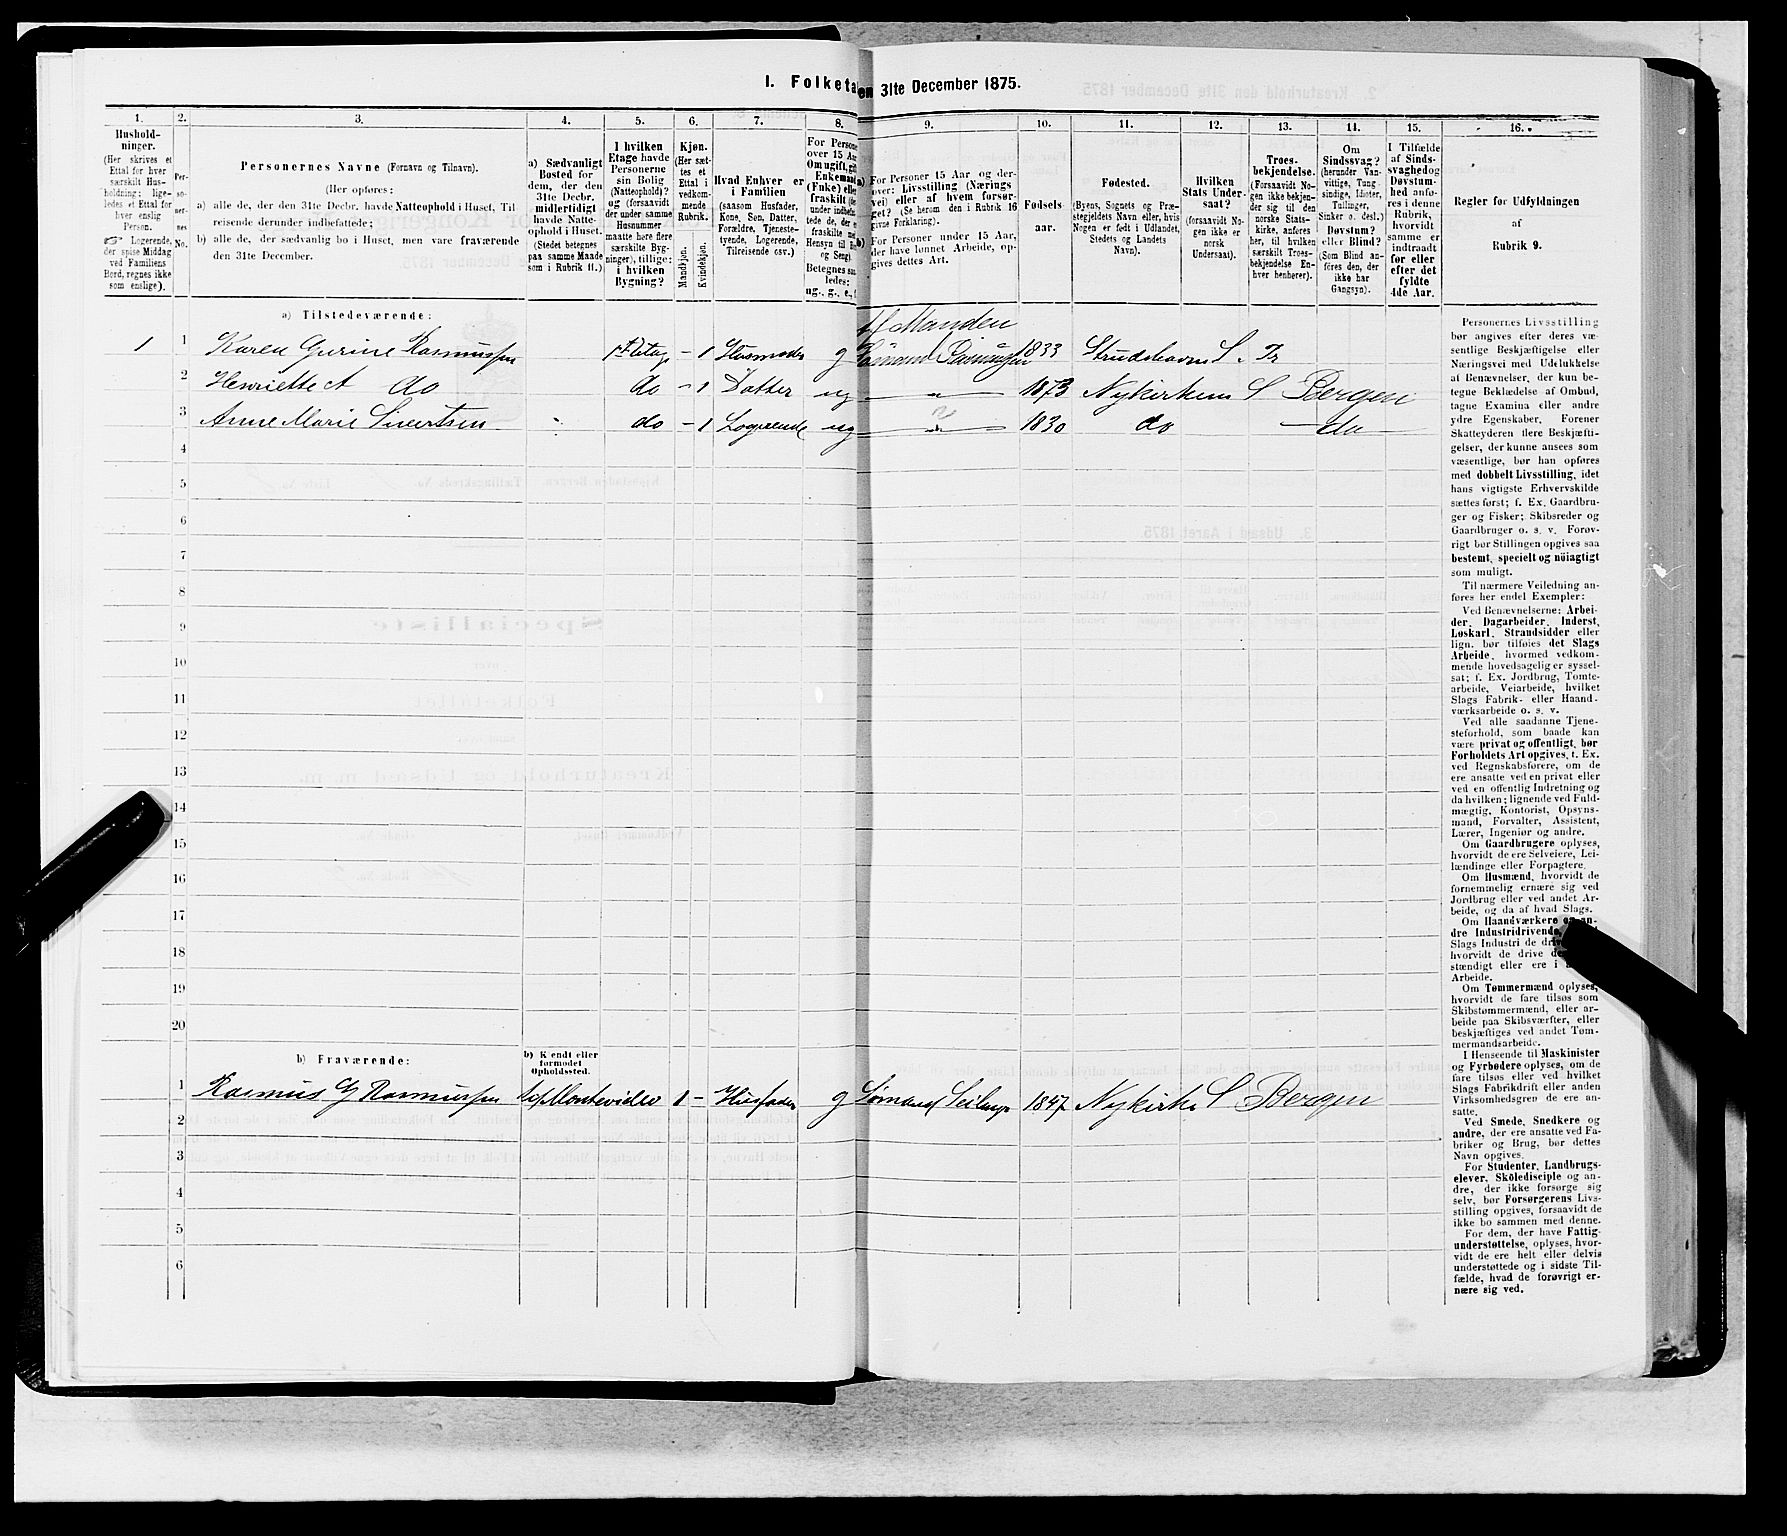 I. Folketa en 31te December 1875.
1. 2. 3. 4. 5. 6. 7. 8. 9. 10. 11. 12. 13. 14. 15. 16.
Hushold-
ninger.
(Her skrives et
Ettal for hver
særskilt Hus-
holdning; lige-
ledes et Ettal for
hver enslig
Person.
Logerende,
der spise Middag
ved Familiens
Bord, regnes ikke
som enslige).
Per-
so-
ner-
nes
No.
Personernes Navne (Fornavn og Tilnavn).
(Her opføres:
a) alle de, der den 31te Decbr. havde Natteophold i Huset, Til
reisende derunder indbefattede;
b) alle de, der sædvanlig bo i Huset, men vare fraværende
den 31te December.
a) Sædvanligt
Bosted for
dem, der den
31te Decbr.
midlertidigt
havde Natte-
ophold i Huset.
(Stedet betegnes
paa samme Maade
som i Rubrik 11.)
I hvilken
Etage havde
Personerne
sin Bolig
(Natteophold)?
og (forsaavidt
der under samme
Husnummer
maatte høre flere
særskilte Byg-
ninger), tillige:
i hvilken
Bygning?
Kjøn.
(Her sæt-
tes et
Ettal i
vedkom-
mende
Rubrik.
Mandkjøn.
Kvindekjøn.
Hvad Enhver er
i Familien
(saasom Husfader,
Kone, Søn, Datter,
Forældre, Tjeneste-
tyende, Logerende,
Tilreisende osv.)
For Persone
over 15 Aar
Om ugift, gift
Enkemand
(Enke) eller
fraskilt (de
under indbefa
tede de, der e
fraskilte med
Hensyn til Bo
og Seng).
Betegnes saa
ledes:
ug., g., e., f
a) For Personer 15 Aar og der-
over: Livsstilling (Nærings
vei) eller af hvem forsør-
get? (Se herom den i Rubrik 16
givne Forklaring).
b) For Personer under 15 Aar,
der have lønnet Arbeide, op-
gives dettes Art.
Fødsels
aar.
Fødested.
(Byens, Sognets og Præ-
stegjeldets Navn eller, hvis
Nogen er født i Udlandet,
Stedets og Landets
Navn).
Hvilken
Stats Under-
saat?
(forsaavidt No-
gen ikke er
norsk
Undersaat).
Troes-
bekjendelse.
(Forsaavidt No-
gen ikke bekjen-
der sig til den
norske Stats-
kirke, anføres
her, til hvilken
særskilt Troes-
bekjendelse En-
hver henhører).
Om
Sindssvag?
(herunder Van-
vittige, Tung-
sindige, Idioter,
Tullinger,
Sinker o. desl.)
Døvstum?
eller Blind?
(Som Blind an-
føres den, der
ikke har
Gangsyn).
I Tilfælde
af Sinds-
svaghed og
Døvstum-
hed anfø-
res i denne
Rubrik,
hvorvidt
samme er
indtraadt
før eller
efter det
fyldte
4de Aar.
Regler for Udfyldningen
af
Rubrik 9.
a) Tilstedeværende:
af Manden
1 1 Karen Gurine Rasmussen 1st Etage – 1 Husmoder g 1833 S. Tr
2 Henriette A do do – 1 Datter ug 1873 Nykirkens S Bergen
3 Anne Marie Sivertsen do – 1 Logerende ug 1830 do – do –
4
5
6
7
8
9
10
11
12
13
14
15
16
17
18
19
20
b) Fraværende:
b) Kendt eller
formodet
Opholdssted.
1 Rasmus G Rasmussen Montevideo 1 – Husfader g Sømand 1847 Nykirke S Bergen
2
3
4
5
6
Personernes Livsstilling
bør angives efter deres væ-
sentlige Beskjæftigelse eller
Næringsvei med Udelukkelse
af Benævnelser, der kun be-
tegne Beklædelse af Ombud,
tagne Examina eller andre
ydre Egenskaber. Forener
Skatteyderen flere Beskjæfti-
gelser, der kunne ansees som
væsentlige, bør han opføres
med dobbelt Livsstilling, idet
hans vigtigste Erhvervskilde
sættes først; f. Ex. Gaardbru-
ger og Fisker; Skibsreder og
Gaardbruger o. s. v. Forøv-
rigt bør Stillingen opgives saa
bestemt, specielt og nøiagtigt
som muligt.
Til nærmere Veiledning an-
føres her endel Exempler:
Ved Benævnelserne: Arbei-
der, Dagarbeider, Inderst,
Løskarl, Strandsidder eller
lign. bør tilføies det Slags
Arbeide, hvormed vedkom-
mende hovedsagelig er syssel-
sat; f. Ex. Jordbrug, Tomte-
arbeide, Veiarbeide, hvilket
Slags Fabrik- eller Haand-
værksarbeide o. s. v.
Ved alle saadanne Tjene-
steforhold, som baade kan
være privat og offentligt, bør
Forholdets Art opgives, t. Ex.
ved Regnskabsførere, om de
ere ansatte ved en privat eller
ved en offentlig Indretning og
da hvilken; lignende ved Fuld-
mægtig, Kontorist, Opsyns-
mand, Forvalter, Assistent,
Lærer, Ingeniør og andre.
Om Gaardbrugere oplyses,
hvorvidt de ere Selveiere, Lei-
lændinge eller Forpagtere.
Om Husmænd, hvorvidt de
fornemmelig ernære sig ved
Jordbrug eller ved andet Ar-
beide, og da af hvad Slags.
Om Haandværkere og an-
dre Industridrivende,
Slags Industri de driv
hvorvidt de drive de
stændigt eller ere i
Arbeide.
Om Tømmermænd oplyses,
hvorvidt de fare tilsøs som
Skibstømmermænd, eller ar-
beide paa Skibsværfter, eller
beskjæftiges ved andet Tøm-
mermandsarbeide.
I Henseende til Maskinister
og Fyrbødere oplyses, om de
fare tilsøs eller ved hvilket
Slags Fabrikdrift eller anden
Virksomhedsgren de ere an-
satte.
Ved Smede, Snedkere og
andre, der ere ansatte ved Fa-
briker og Brug, bør dettes
Navn opgives.
For Studenter, Landbrugs-
elever, Skoledisciple og an-
dre, der ikke forsørge sig
selv, bør Forsørgerens Livs-
stilling opgives, forsaavidt de
ikke bo sammen med denne.
For dem, der have Fattig-
understøttelse, oplyses, hvor-
vidt de ere helt eller delvis
understøttede og i sidste Til-
fælde, hvad de forøvrigt er-
nære sig ved.